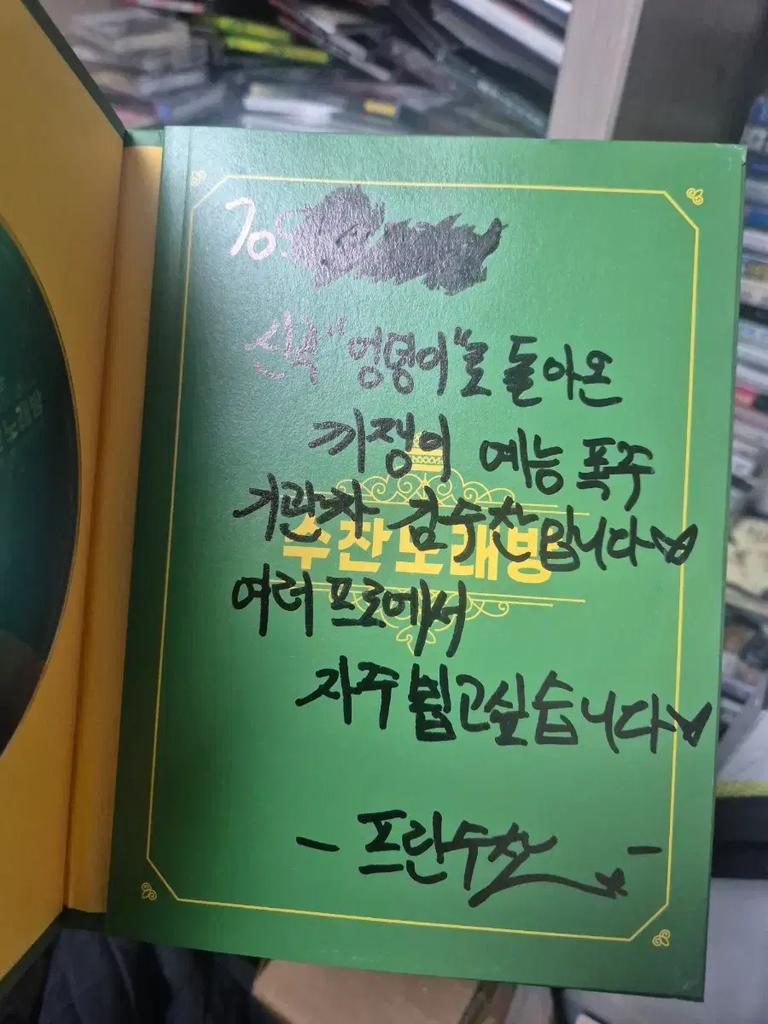 To
신곡 "엉덩이"로 돌아온
끼쟁이 예능 폭주
기관차 김수찬입니다♡
수찬노래방
여러 프로에서
자주 뵙고싶습니다♡
- 프란수찬 -
노래방